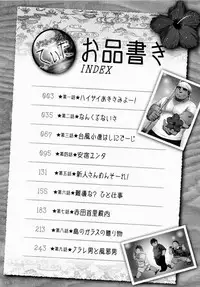 お品書き
INDEX
003 ★第一話★ハイサイあきさみよー!
035 ★第二話★なんくるないさ
067 ★第三話★台風小僧はしにでーじ
095 ★第四話★安宿ユンタ
131 ★第五話★新人さんめんそーれ!
155 ★第六話★難儀な?ひと仕事
183 ★第七話★
213 ★第八話★島のガラスの贈り物
243 ★第九話★フラレ男と風邪男